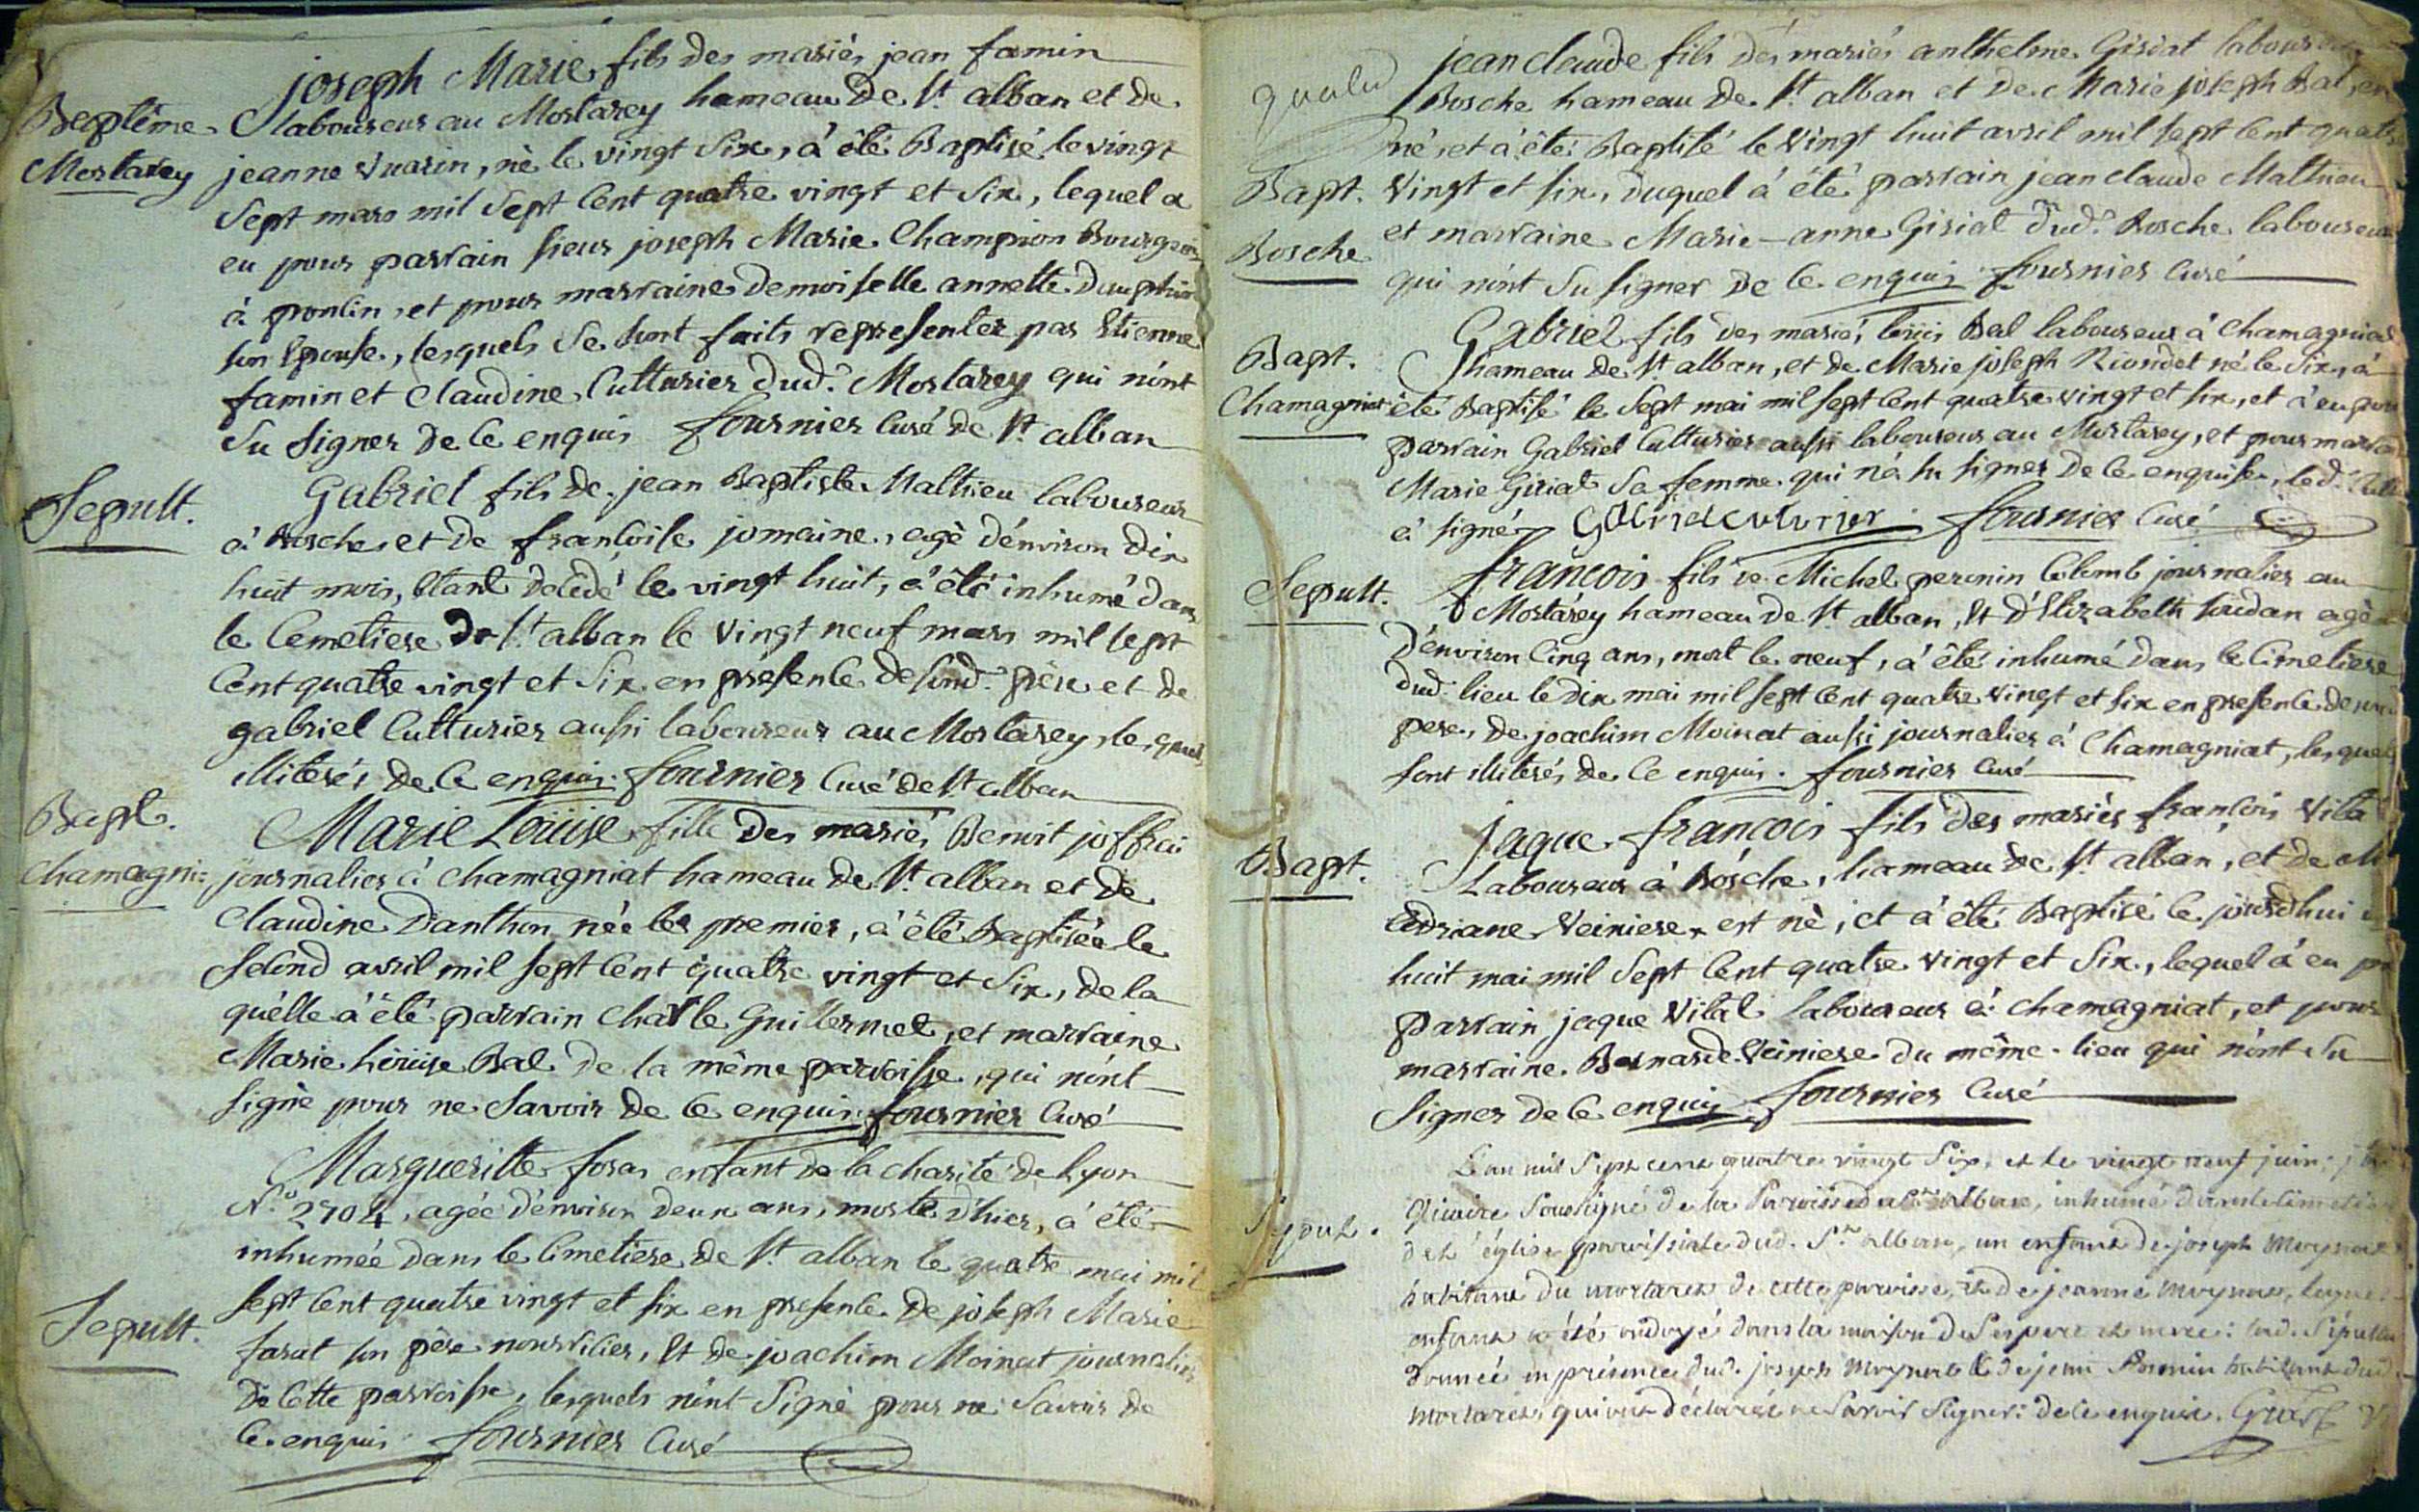 joseph Marie fils des mariés jean famin
Baptême laboureur au Mortarey hameau de St alban et de
Mortarey jeanne Vuarin, nè le vingt Six, à été Baptisé le vingt
Sept mars mil Sept Cent quatre vingt et Six, lequel a
eu pour parrain sieur joseph Marie Champion Bourgeois
à ponlin, et pour marraine Demoiselle annette Dauphin
son Epouse, lesquels se sont faits representer par Etienne
famin et Claudine Cutturier dud.t Mortarey qui n'ont
Su signer de Ce enquis fournier Curé de St alban
Sepult.
Gabriel fils de jean Baptiste Mathieu laboureur
à Bosche, et de françoise jomaine, agè d'environ dix
huit mois, Etant décédé le vingt huit, à été inhumé dans
le Cemetiere de St alban le vingt neuf mars mil sept
Cent quatre vingt et Six en présence de sond. père et de
gabriel Cutturier aussi laboureur au Mortarey, les quels
illiterés de Ce enquis. fournier Curé de St alban
Bapt.
Marie Loüise fille des mariés Benoit joffrai
Chamagni= journalier à Chamagniat hameau de St alban et de
Claudine Danthon née le premier, à été Baptisée le
Second avril mil sept Cent quatre vingt et Six, de la
qu'elle à été parrain Charle Guillermet, et marraine
Marie Loüise Bal de la même parroisse, qui n'ont
signè pour ne Savoir de Ce enquis. fournier Curé
Marguerite foras enfant de la charité de Lyon
N.o 2704, agée d'environ deux ans, morte d'hier, à été
inhumée dans le Cimetiere de St alban le quatre mai mil
Sept Cent quatre vingt et six en presence de joseph Marie
Sepult.
farat son père nourricier, Et de joachim Moinat journalier
De Cette parroisse, lesquels n'ont Signé pour ne Savoir de
Ce enquis fournier Curé
jean claude fils des mariés anthelme Giriat laboureur
Bosche hameau de St alban et de Marie joseph Bal, en
né, et à été Baptisé le Vingt huit avril mil sept Cent quatre
Bapt. Vingt et six, duquel à été parrain jean claude Mathieu
et marraine Marie-anne Giriat dud.t Bosche laboureur
Bosche
qui n'ont Su signer de Ce enquis fournier Curé
Gabriel fils des mariés louis Bal laboureur à Chamagniat
Bapt. hameau de St alban, et de Marie joseph Riondet né le Six, à
Chamagniat été Baptisé le Sept mai mil sept Cent quatre vingt et six, et à eu pour
parrain Gabriel Cutturier aussi laboureur au Mortarey, et pour marraine
Marie Giriat Sa femme qui n'a su signer de Ce enquise, led.t
à signé. Gabriel cuturier fournier Curé
Sepult. françois fils de Michel peronin Colomb journalier au
Mortarey hameau de St alban, Et d'Elizabeth soudan agé
D'environ Cinq ans, mort le neuf, à été inhumé dans le Cimetiere
dud. lieu le dix mai mil sept Cent quatre vingt et six en presence de
pere, De joachim Moinat aussi journalier à Chamagniat, lesquels
sont illiterés de Ce enquis. fournier Curé
jaque françois fils des mariés françois Vital
Bapt. Laboureur à Bosche, hameau de St alban, et de
adriane Veiniere est nè, et à été Baptisé le jourd'hui
huit mai mil Sept Cent quatre vingt et Six, lequel à eu
parrain jaque Vital laboureur à Chamagniat, et pour
marraine Bernarde Veiniere du même lieu qui n'ont Su
Signer de Ce enquis fournier Curé
L'an mil Sept cent quatre vingt Six, et le vingt neuf juin, j'ai
Vicaire Soussigné de la Paroisse de St alban, inhumé dans le Cimetiere
Sepult.
de l'église paroissiale dud. St alban, un enfant de joseph Moynat
habitant du mortarey de cette paroisse, et de jeanne Moynat, lequel
enfant a été ondoyé dans la maison de Ses pere et mere: lad. Sépulture
donnée en présence dud. joseph Moynat et de jean famin habitant dud.
mortarey, qui ont déclaré ne Savoir Signer: de ce enquis.